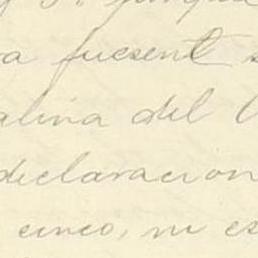 a fuesent
alina del
declaracion
cinco, ni es